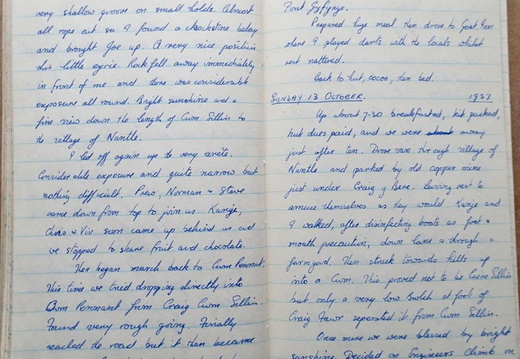 very shallow groove on small holds. Almost
all rope out so I found a chockstone belay
and brought Joe up. A very nice position
this little eyrie. Rock fell away immediately
in front of me and there was considerable
exposure all round. Bright sunshine and a
fine view down the length of Cwm Silin to
the village of Nantlle.
I led off again up to very arête.
Considerable exposure and quite narrow but
nothing difficult. Prew, Norman & Steve
came down from top to join us. Kanje,
Chris & Viv soon came up behind us and
we stopped to share fruit and chocolate.
Then began march back to Cwm Pennant.
This time we tried dropping directly into
Cwm Pennant from Craig Cwm Silin
Found very rough going. Finally
reached the road but it then became
Pont Gyfyng.
Prepared huge meal then drove to
where I played darts with the locals whilst
rest nattered.
Back to hut, cocoa, then bed.
SUNDAY 13 OCTOBER.
Up about 7.30 breakfasted, kit packed,
hut dues paid, and we were away
just after ten. Drove through village of
Nantlle and parked by old copper mine
just under Craig y Bere. Leaving rest to
amuse themselves as they would Kanje and
I walked, after disinfecting boots as foot &
mouth precaution, down lane & through a
farmyard. Then struck towards hills up
into a Cwm. This proved not to be Cwm Silin
but only a very low at foot of
Craig seperated it from Cwm Silin.
Once more we were blessed by bright
sunshine. Decided on Engineers Climb on